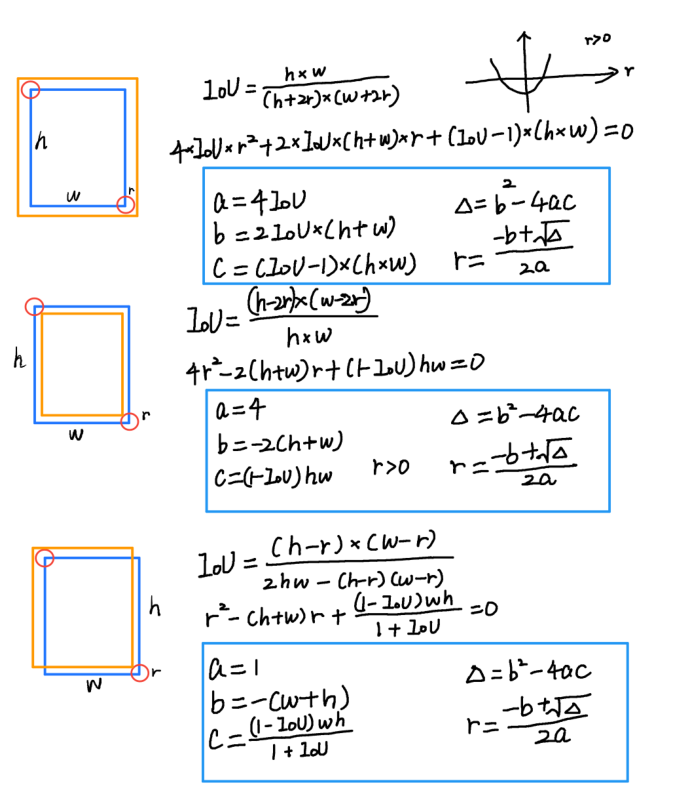 IoU = h×w / (h+2r)×(w+2r)
r>0
r
h
w
r
4×IoU×r²+2×IoU×(h+w)×r+(IoU-1)×(h×w)=0
a=4IoU
b=2IoU×(h+w)
c=(IoU-1)×(h×w)
Δ=b²-4ac
r= -b+√Δ / 2a
h
w
r
IoU= (h-2r)×(w-2r) / h×w
4r²-2(h+w)r+(1-IoU)hw=0
a=4
b=-2(h+w)
c=(1-IoU)hw
r>0
Δ=b²-4ac
r= -b+√Δ / 2a
h
w
r
IoU = (h-r)×(w-r) / 2hw-(h-r)(w-r)
r²-(h+w)r+ (1-IoU)wh / 1+IoU =0
a=1
b=-(w+h)
c= (1-IoU)wh / 1+IoU
Δ=b²-4ac
r= -b+√Δ / 2a